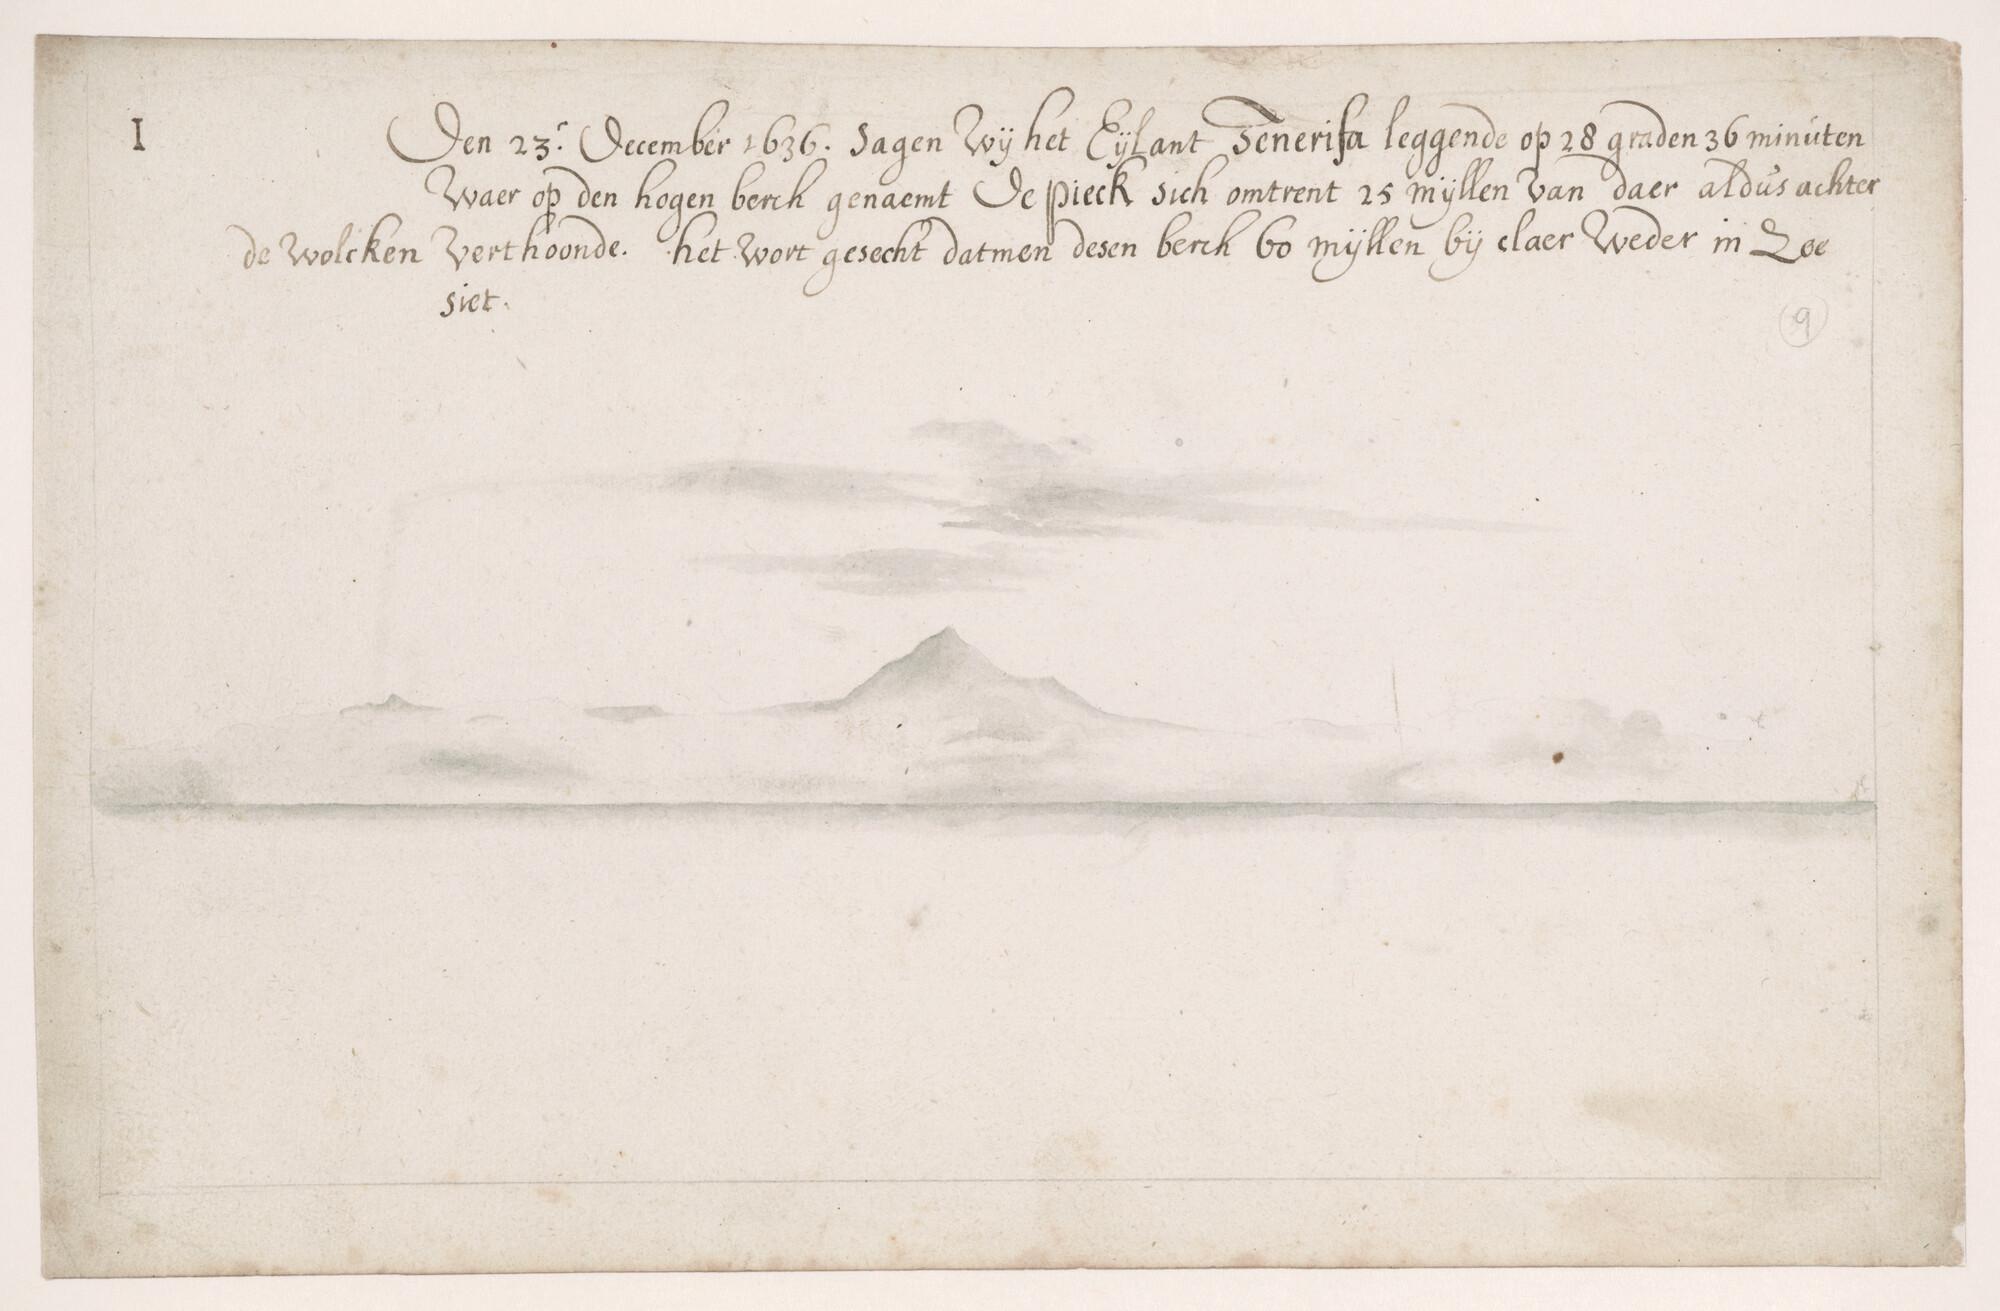 I
Den 23.ʳ December 1636. Sagen Wij het Eijlant Tenerifa leggende op 28 graden 36 minúten
Waer op den hogen berch genaemt De pieck sich omtrent 25 mijllen van daer aldús achter
de wolcken verthoonde. het wort gesecht datmen desen berch 60 mijllen bij claer Weder in Zee
siet.
9